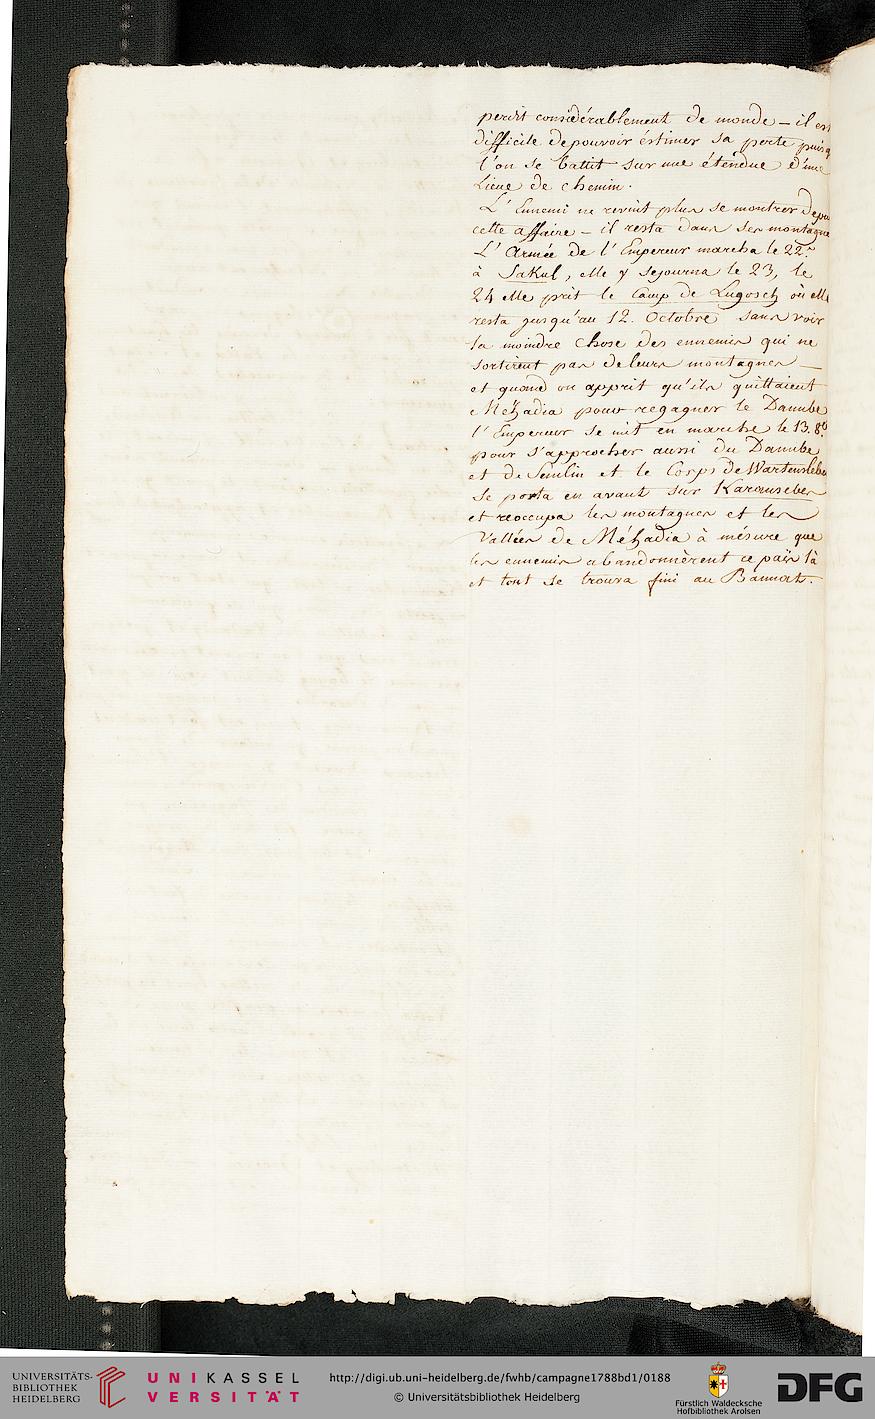 perdit considérablement de monde – il est
difficile de pouvoir éstimer sa perte puisq
l'on se battit sur une éténdue d'une
Lieue de chemin.
L'Ennemi ne revint plus se montrer depuis
cette affaire – il resta dans ses montagnes
L'Armée de l'Empereur marcha le 22.
à Sakul, elle y sejourna le 23, le
24 elle prit le Camp de Lugosch où elle
resta jusqu'au 12. Octobre sans voir
la moindre chose des ennemis qui ne
sortirent pas de leurs montagnes –
et quand on apprit qu'ils quittaient
Méhadia pour regagner le Danube
l'Empereur se mit en marche le 13. 8.
pour s'approcher aussi du Danube
et de Semlin et le Corps de Wartensleben
se porta en avant sur Karansebes
et reoccupa les montagnes et les
Vallées de Méhadia à mésure que
les ennemis abandonnèrent ce païs là
et tout se trouva fini au Bannat.
UNIVERSITÄTS-
BIBLIOTHEK
HEIDELBERG
UNIKASSEL
VERSITÄT
http://digi.ub.uni-heidelberg.de/fwhb/campagne1788bd1/0188
© Universitätsbibliothek Heidelberg
Fürstlich Waldecksche
Hofbibliothek Arolsen
DFG